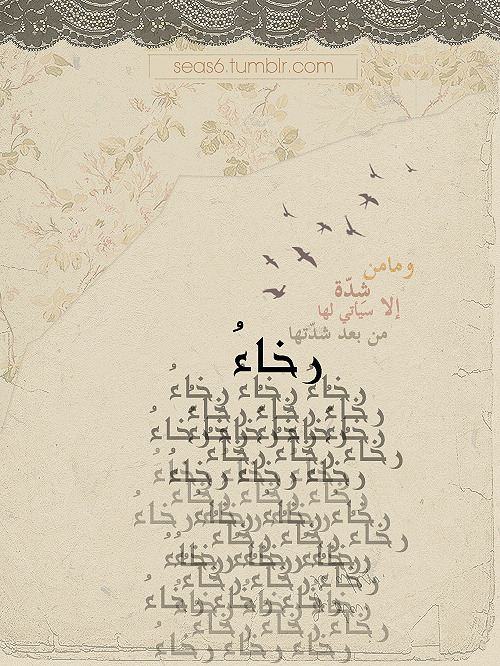 seas6.tumblr.com
ومامن
شدّة
إلا سيأتي لها
من بعد شدّتها
رخاءُ
رخاءُ رخاءُ رخاءُ
رخاءُ رخاءُ رخاءُ
رخاءُ رخاءُ رخاءُ رخاءُ
رخاءُ رخاءُ رخاءُ
رخاءُ رخاءُ رخاءُ
رخاءُ رخاءُ رخاءُ
رخاءُ رخاءُ رخاءُ رخاءُ
رخاءُ رخاءُ رخاءُ
رخاءُ رخاءُ رخاءُ
رخاءُ رخاءُ رخاءُ
رخاءُ رخاءُ رخاءُ
رخاءُ رخاءُ رخاءُ
رخاءُ رخاءُ رخاءُ